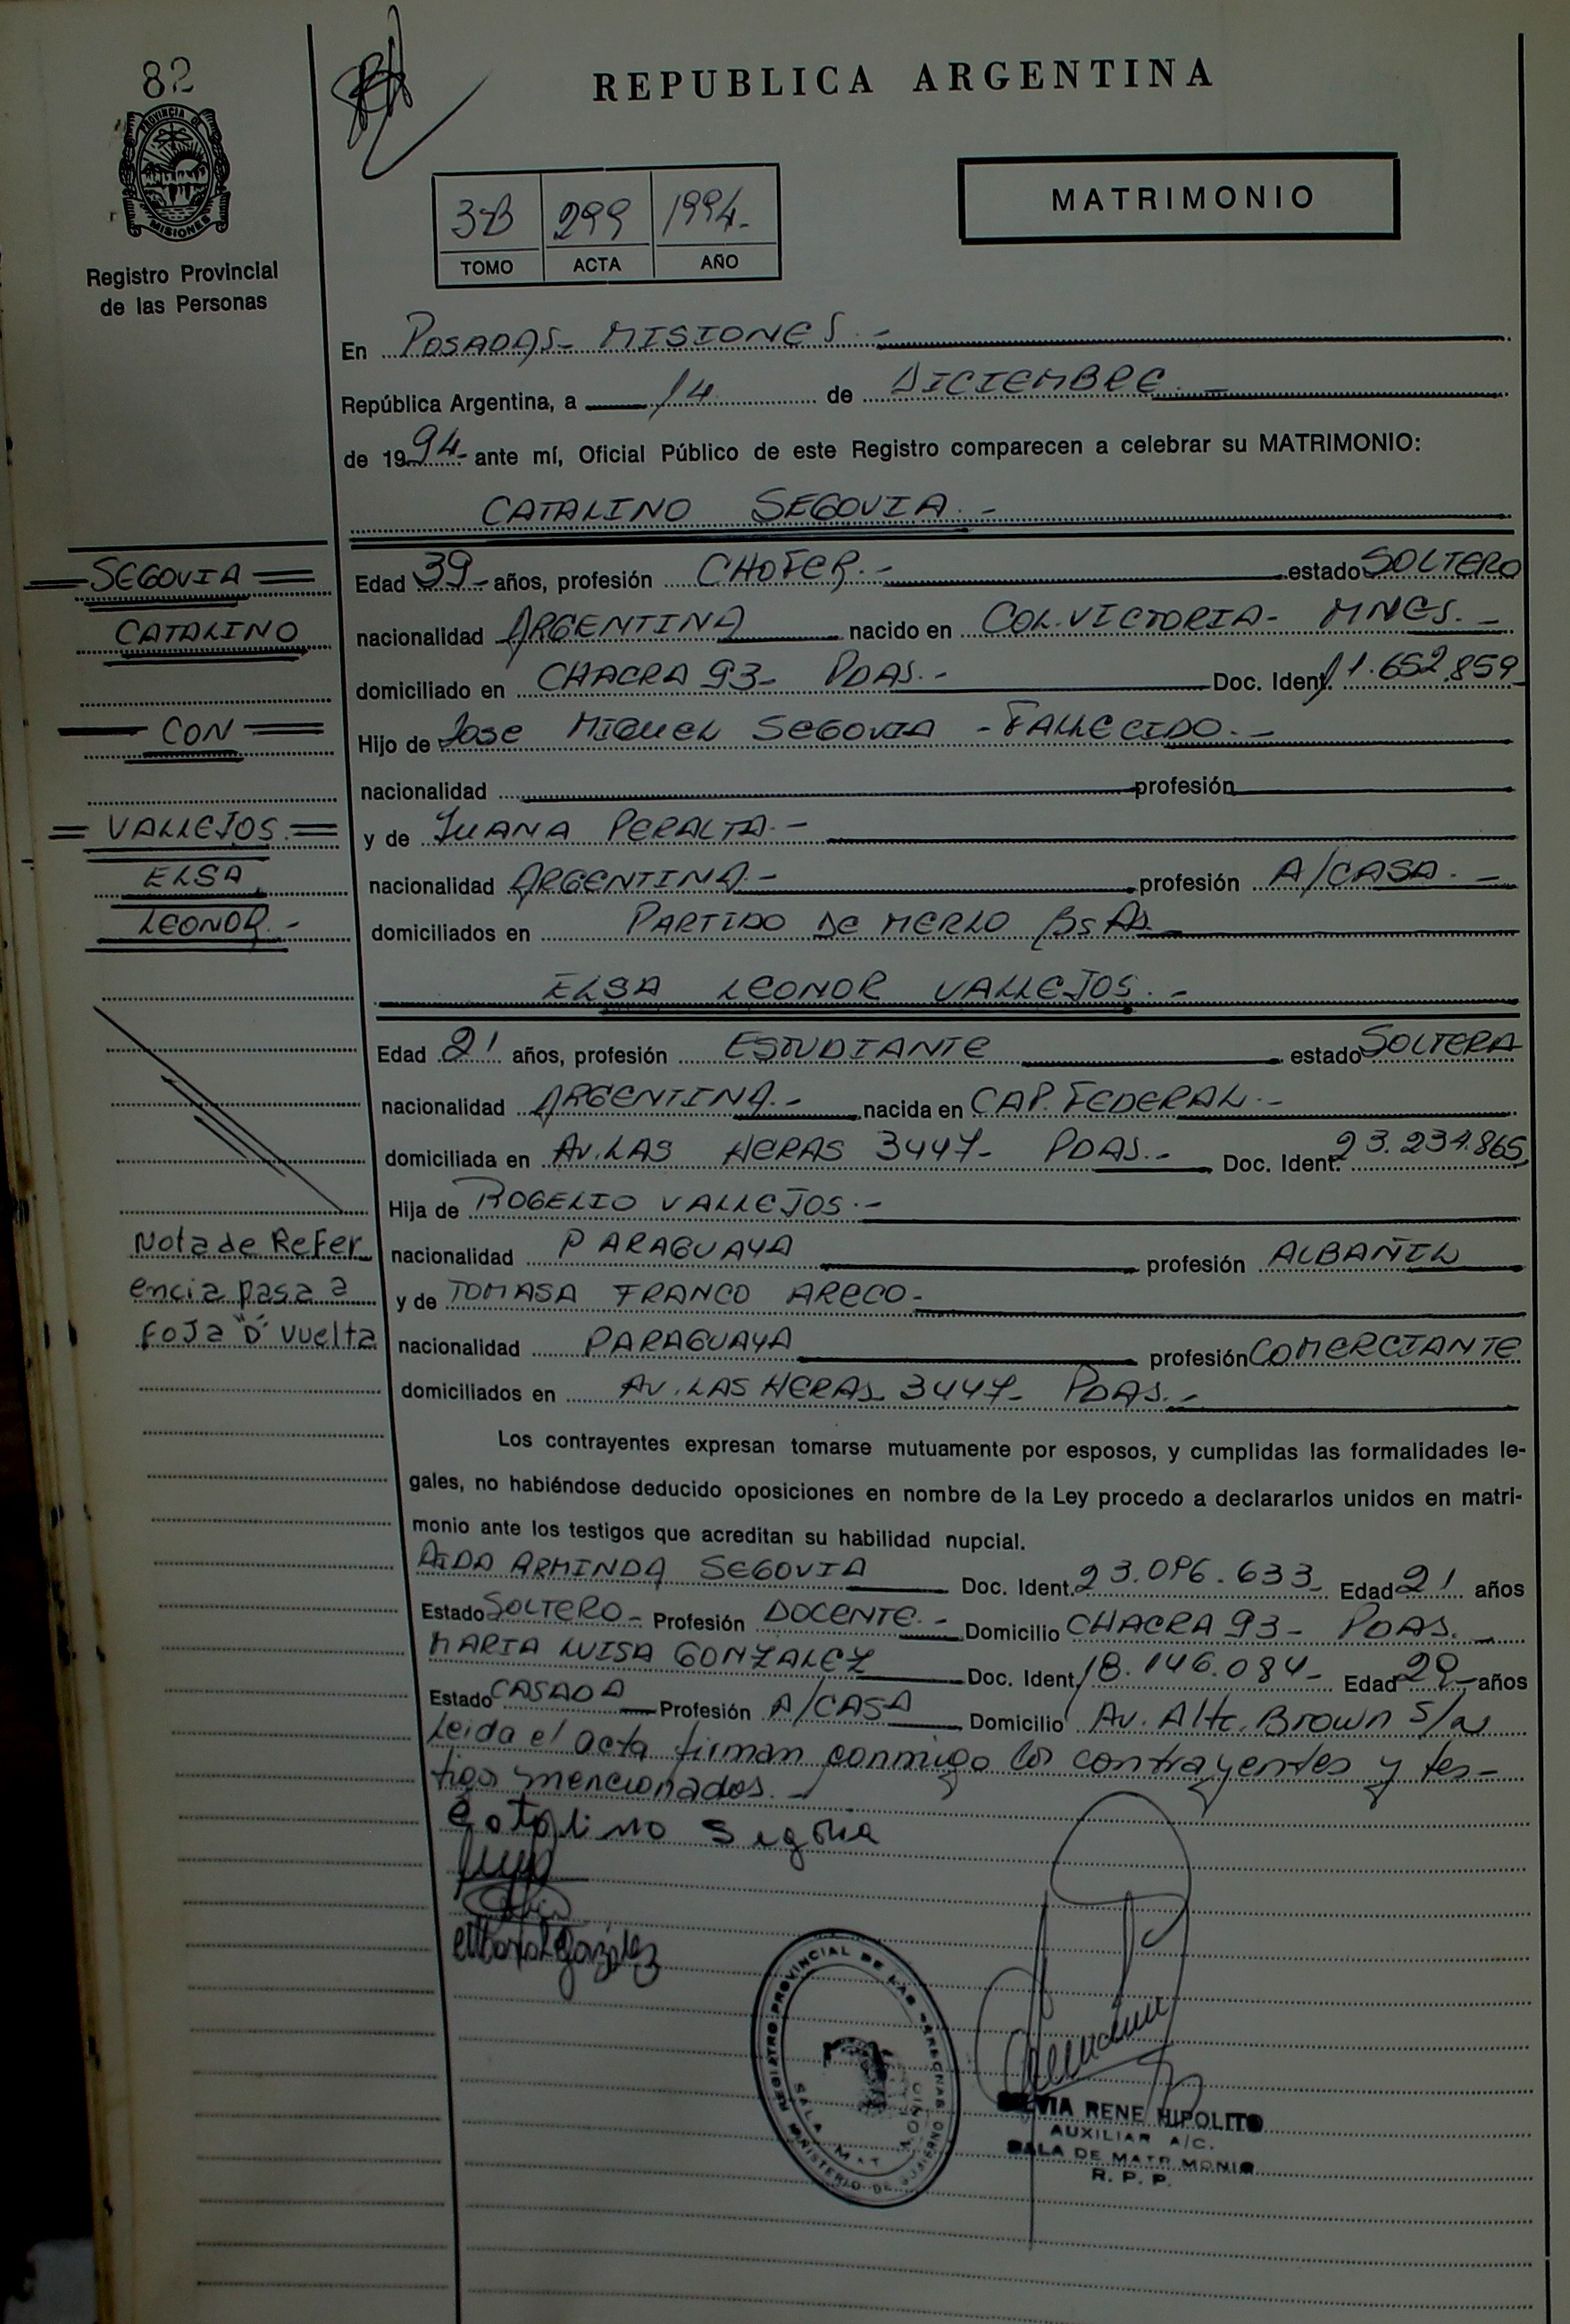 82
PROVINCIA DE
MISIONES
Registro Provincial
de las Personas
REPUBLICA ARGENTINA
MATRIMONIO
3-B 299 1994.-
TOMO ACTA AÑO
En POSADAS- MISIONES.-
República Argentina, a 14 de DICIEMBRE.-
de 1994- ante mí, Oficial Público de este Registro comparecen a celebrar su MATRIMONIO:
CATALINO SEGOVIA.-
SEGOVIA
CATALINO
CON
VALLEJOS.
ELSA
LEONOR.-
Edad 39- años, profesión CHOFER.- estado SOLTERO
nacionalidad ARGENTINA nacido en COL.VICTORIA- MNES.-
domiciliado en CHACRA 93- PDAS.- Doc. Ident. 11.652.859
Hijo de JOSE MIGUEL SEGOVIA -FALLECIDO.-
nacionalidad profesión
y de JUANA PERALTA.-
nacionalidad ARGENTINA.- profesión A/CASA.-
domiciliados en PARTIDO DE MERLO BS AS.
ELSA LEONOR VALLEJOS.-
Edad 21 años, profesión ESTUDIANTE estado SOLTERA
nacionalidad ARGENTINA.- nacida en CAP. FEDERAL.-
domiciliada en AV.LAS HERAS 3447- PDAS.- Doc. Ident. 23.234.865
Hija de ROGELIO VALLEJOS.-
nacionalidad PARAGUAYA profesión ALBAÑIL
y de TOMASA FRANCO ARECO-
nacionalidad PARAGUAYA profesión COMERCIANTE
domiciliados en AV.LAS HERAS 3447- PDAS.-
Nota de Refer
encia pasa a
Foja "D" vuelta
Los contrayentes expresan tomarse mutuamente por esposos, y cumplidas las formalidades le-
gales, no habiéndose deducido oposiciones en nombre de la Ley procedo a declararlos unidos en matri-
monio ante los testigos que acreditan su habilidad nupcial.
AIDA ARMINDA SEGOVIA Doc. Ident. 23.096.633- Edad 21 años
Estado SOLTERO- Profesión DOCENTE.- Domicilio CHACRA 93- PDAS.
MARIA LUISA GONZALEZ Doc. Ident. 18.146.084- Edad 28- años
Estado CASADA Profesión A/CASA Domicilio Av. Alte. Brown S/n
Leida el acta firman conmigo los contrayentes y tes-
tigos mencionados.-
Catalino Segovia
REGISTRO PROVINCIAL DE LAS PERSONAS
MINISTERIO DE GOBIERNO
SILVIA RENE HIPOLITO
AUXILIAR A/C.
SALA DE MATRIMONIO
R. P. P.